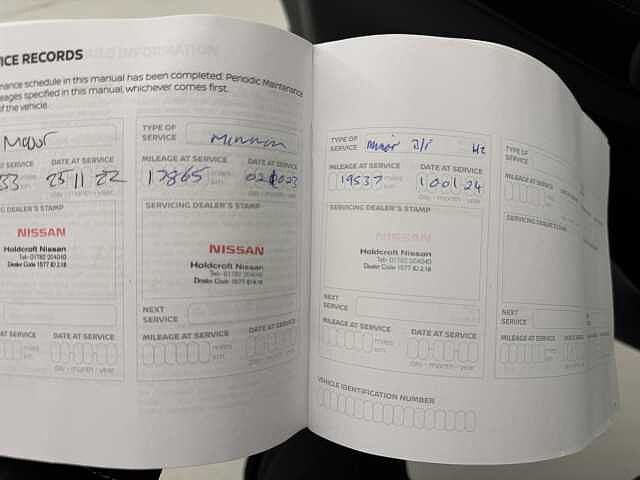 ICE RECORDS
nance schedule in this manual has been completed. Periodic Maintenance
eages specified in this manual, whichever comes first.
of the vehicle.
Major
SERVICE DATE AT SERVICE
33 miles km 25 11 22
day - month - year
G DEALER'S STAMP
NISSAN
Holdcroft Nissan
Tel:- 01782 204040
Dealer Code 1577 ID 2.18
AT SERVICE DATE AT SERVICE
miles km
day - month - year
TYPE OF SERVICE
MILEAGE AT SERVICE DATE AT SERVICE
17865 miles km
day - month - year
SERVICING DEALER'S STAMP
NISSAN
Holdcroft Nissan
Tel:- 01782 204040
Dealer Code 1577 ID 2.18
NEXT SERVICE
MILEAGE AT SERVICE DATE AT SERVICE
miles km
day - month - year
TYPE OF SERVICE Minor
MILEAGE AT SERVICE DATE AT SERVICE
19537 miles km 10 01 24
day - month - year
SERVICING DEALER'S STAMP
NISSAN
Holdcroft Nissan
Tel:- 01782 204040
Dealer Code 1577 ID 2.18
NEXT SERVICE
MILEAGE AT SERVICE DATE AT SERVICE
miles km
day - month - year
VEHICLE IDENTIFICATION NUMBER
TYPE OF SERVICE
MILEAGE AT SERVICE
SERVICING DEALER'S
NEXT SERVICE
MILEAGE AT SERVICE